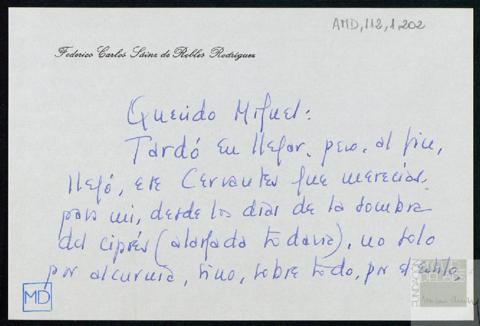 AMD,112,1,202
Federico Carlos Sáinz de Robles Rodríguez
Querido Miguel:
Tardó en llegar. pero, al fin,
llegó, ese Cervantes que merecías,
para mi, desde los días de la sombra
del ciprés (alargada todavía), no solo
por alcurnia, sino, sobre todo, por el estilo,
MD
FUNDACIÓN